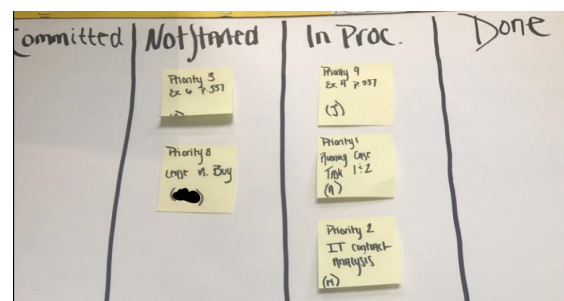 Committed
Not Started
In Proc.
Done
Priority 3
Ex 6 P.337
Priority 8
Lease vs. Buy
Priority 9
Ex 4 P.337
(J)
Priority 1
Running Case
Task 1 & 2
(A)
Priority 2
IT Contract
Analysis
(M)